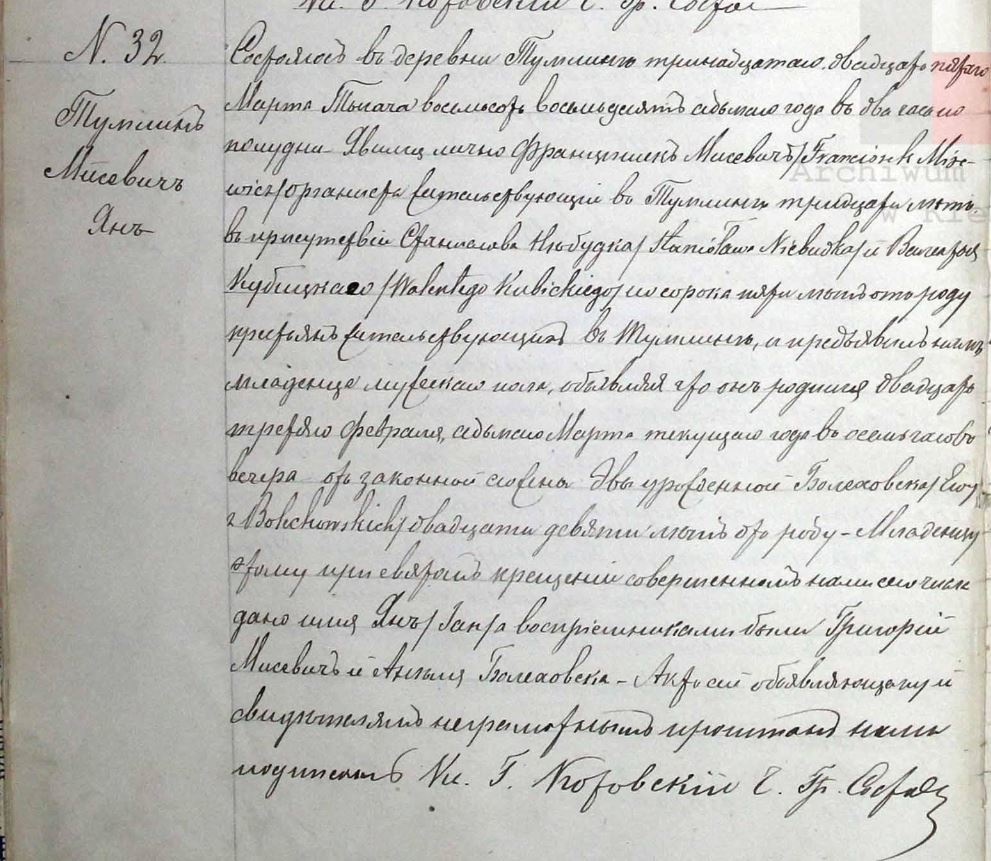 Кс. Г. Котовскій С. Гр. Состоя
N. 32.
Тумлинъ
Мисевичъ
Янъ
Состоялось въ деревни Тумлинъ тринадцатаго двадцать пятаго
Марта Тысяча восемьсотъ восемьдесятъ седьмаго года въ два часа по
полудни Явился лично Францишекъ Мисевичъ /Franciszek Misie-
wicz/ органиста жительствующій въ Тумлинѣ тридцати лѣтъ
въ присутствіи Станислава Нѣбудка /Stanisława Niebudka/ и Валентя
Кубицкаго /Walentego Kubickiego/ по сорока пяти лѣтъ отъ роду
крестьянъ жительствующихъ въ Тумлинѣ, и предъявилъ намъ
младенца мужескаго пола, объявляя что онъ родился двадцать
третяго Февраля, седьмаго Марта текущаго года въ осемь часовъ
вечера отъ законной его жены Эвы урожденной Болеховска /Ewy
z Bolechowskich/ двадцати девяти лѣтъ отъ роду - Младенцу
этому при святомъ крещеніи совершенномъ нами сего числа
дано имя Янъ /Jan/ а воспріемниками были Григорій
Мисевичъ и Анѣля Болеховска - Актъ сей объявляющему и
свидѣтелямъ неграмотнымъ прочитанъ нами
подписанъ Кс. Г. Котовскій С. Гр. Состоя
Archiwum
w Kie